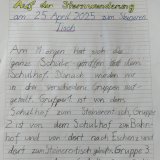 Auf der Sternwanderung
am 25. April 2025 zum Steinernen
Tisch
Am Morgen hat sich die
ganze Schule getroffen auf dem
Schulhof. Danach wurden wir
in drei verschiedene Gruppen auf-
geteilt. Gruppe 1 ist von dem
Schulhof zum Steinerntisch, Gruppe
2 ist von dem Schulhof zum Bahn-
hof und von dort nach Eschenz und
dort zum Steinerntisch gleich. Gruppe 3